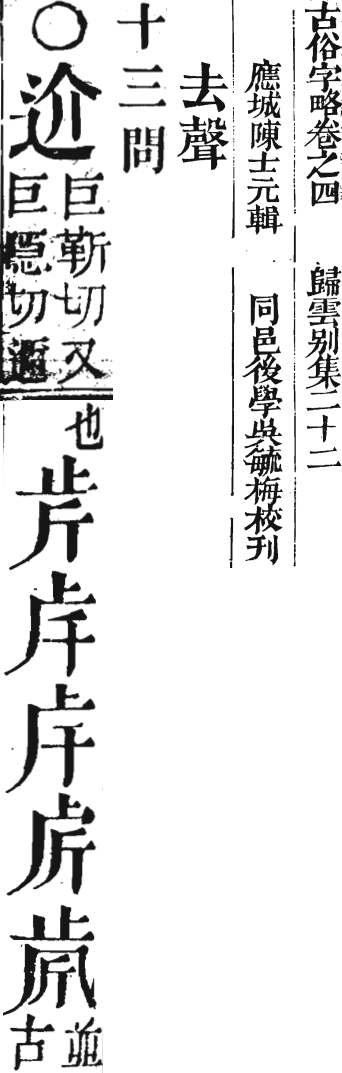 古俗字略卷之四　歸雲别集二十二
應城陳士元輯　同邑後學吳毓梅校刊
去聲
十三問
○
巨靳切又
巨隱切邇
也
並
古